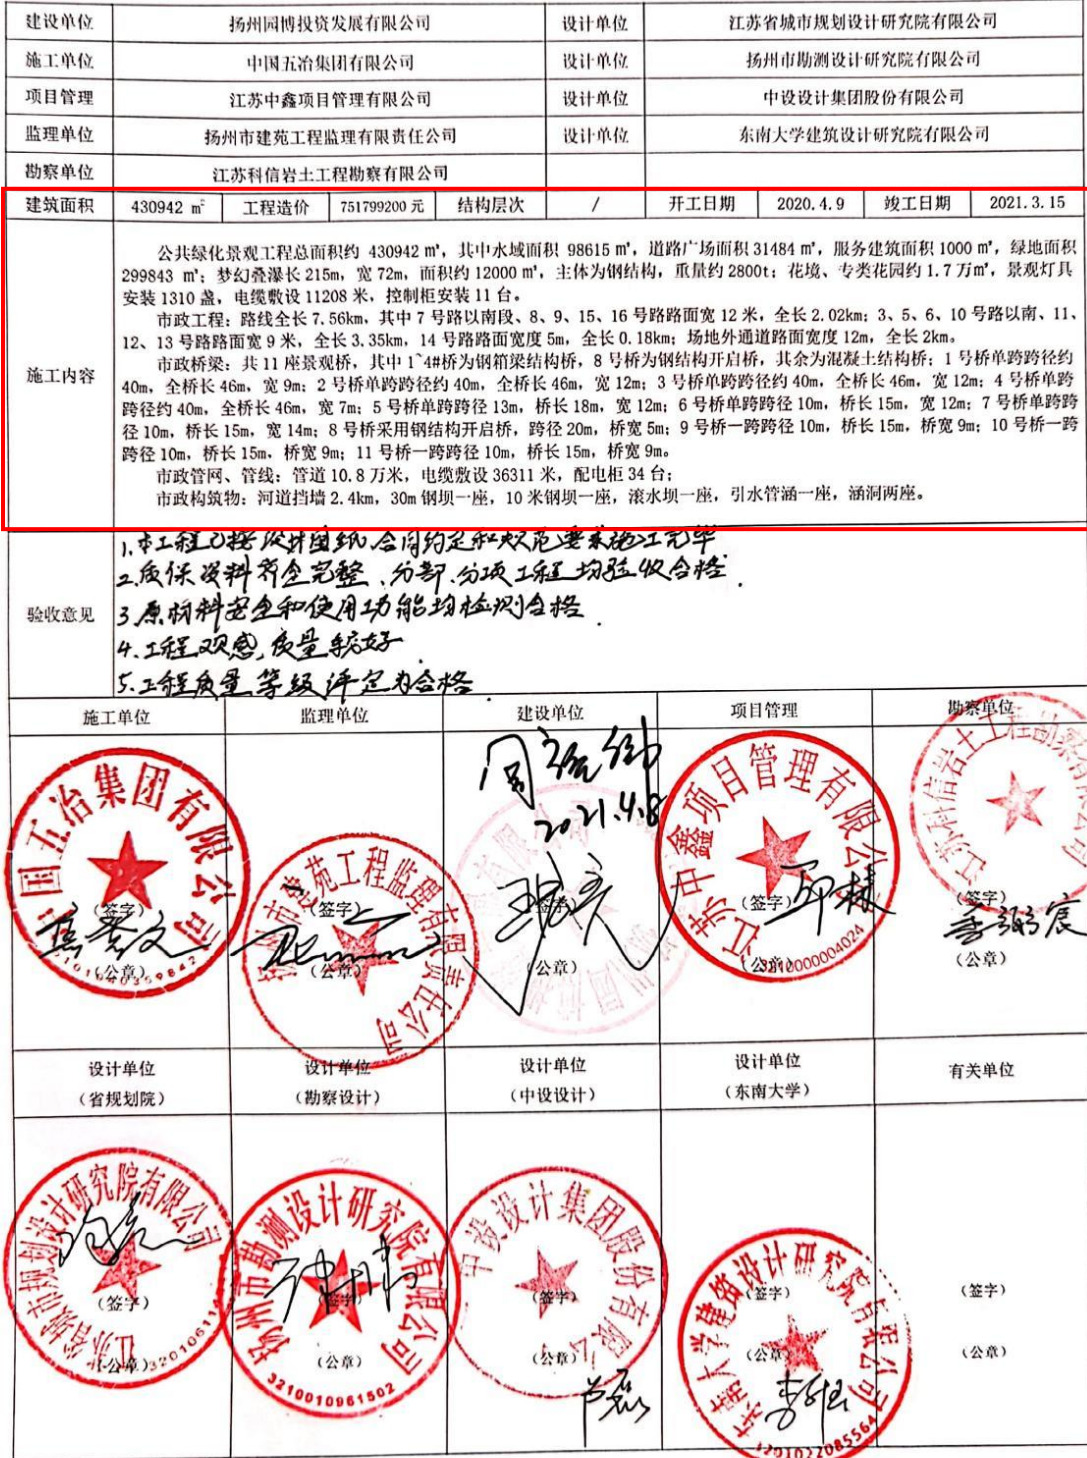 建设单位 扬州园博投资发展有限公司 设计单位 江苏省城市规划设计研究院有限公司
施工单位 中国五冶集团有限公司 设计单位 扬州市勘测设计研究院有限公司
项目管理 江苏中鑫项目管理有限公司 设计单位 中设设计集团股份有限公司
监理单位 扬州市建苑工程监理有限责任公司 设计单位 东南大学建筑设计研究院有限公司
勘察单位 江苏科信岩土工程勘察有限公司
建筑面积 430942 ㎡ 工程造价 751799200元 结构层次 / 开工日期 2020.4.9 竣工日期 2021.3.15
施工内容
公共绿化景观工程总面积约 430942 ㎡，其中水域面积 98615 ㎡，道路广场面积 31484 ㎡，服务建筑面积 1000 ㎡，绿地面积
299843 ㎡；梦幻叠瀑长 215m，宽 72m，面积约 12000 ㎡，主体为钢结构，重量约 2800t；花境、专类花园约 1.7 万㎡，景观灯具
安装 1310 盏，电缆敷设 11208 米，控制柜安装 11 台。
市政工程：路线全长 7.56km，其中 7 号路以南段、8、9、15、16 号路路面宽 12 米，全长 2.02km；3、5、6、10 号路以南、11、
12、13 号路路面宽 9 米，全长 3.35km，14 号路路面宽度 5m，全长 0.18km；场地外通道路面宽度 12m，全长 2km。
市政桥梁：共 11 座景观桥，其中 1~4#桥为钢箱梁结构桥，8 号桥为钢结构开启桥，其余为混凝土结构桥；1 号桥单跨跨径约
40m，全桥长 46m，宽 9m；2 号桥单跨跨径约 40m，全桥长 46m，宽 12m；3 号桥单跨跨径约 40m，全桥长 46m，宽 12m；4 号桥单跨
跨径约 40m，全桥长 46m，宽 7m；5 号桥单跨跨径 13m，桥长 18m，宽 12m；6 号桥单跨跨径 10m，桥长 15m，宽 12m；7 号桥单跨跨
径 10m，桥长 15m，宽 14m；8 号桥采用钢结构开启桥，跨径 20m，桥宽 5m；9 号桥一跨跨径 10m，桥长 15m，桥宽 9m；10 号桥一跨
跨径 10m，桥长 15m，桥宽 9m；11 号桥一跨跨径 10m，桥长 15m，桥宽 9m。
市政管网、管线：管道 10.8 万米，电缆敷设 36311 米，配电柜 34 台；
市政构筑物：河道挡墙 2.4km，30m 钢坝一座，10 米钢坝一座，滚水坝一座，引水管涵一座，涵洞两座。
验收意见
1.本工程已按设计图纸、合同约定和规范要求施工完毕
2.质保资料齐全完整、分部、分项工程均验收合格.
3.原材料安全和使用功能均检测合格.
4.工程观感,质量较好
5.工程质量等级评定为合格
施工单位 监理单位 建设单位 项目管理 勘察单位
2021.4.8
国五冶集团有限公司
建苑工程监理有限责任公司
江苏中鑫项目管理有限公司
3210000004024
江苏科信岩土工程勘察有限
(签字) (签字) (签字) (签字) (签字)
(公章) (公章) (公章) (公章) (公章)
设计单位 设计单位 设计单位 设计单位 有关单位
(省规划院) (勘察设计) (中设设计) (东南大学)
江苏省城市规划设计研究院有限公司
扬州市勘测设计研究院有限公司
3210010961502
中设设计集团股份有限公司
东南大学建筑设计研究院有限公司
(签字) (签字) (签字) (签字) (签字)
(公章) (公章) (公章) (公章) (公章)